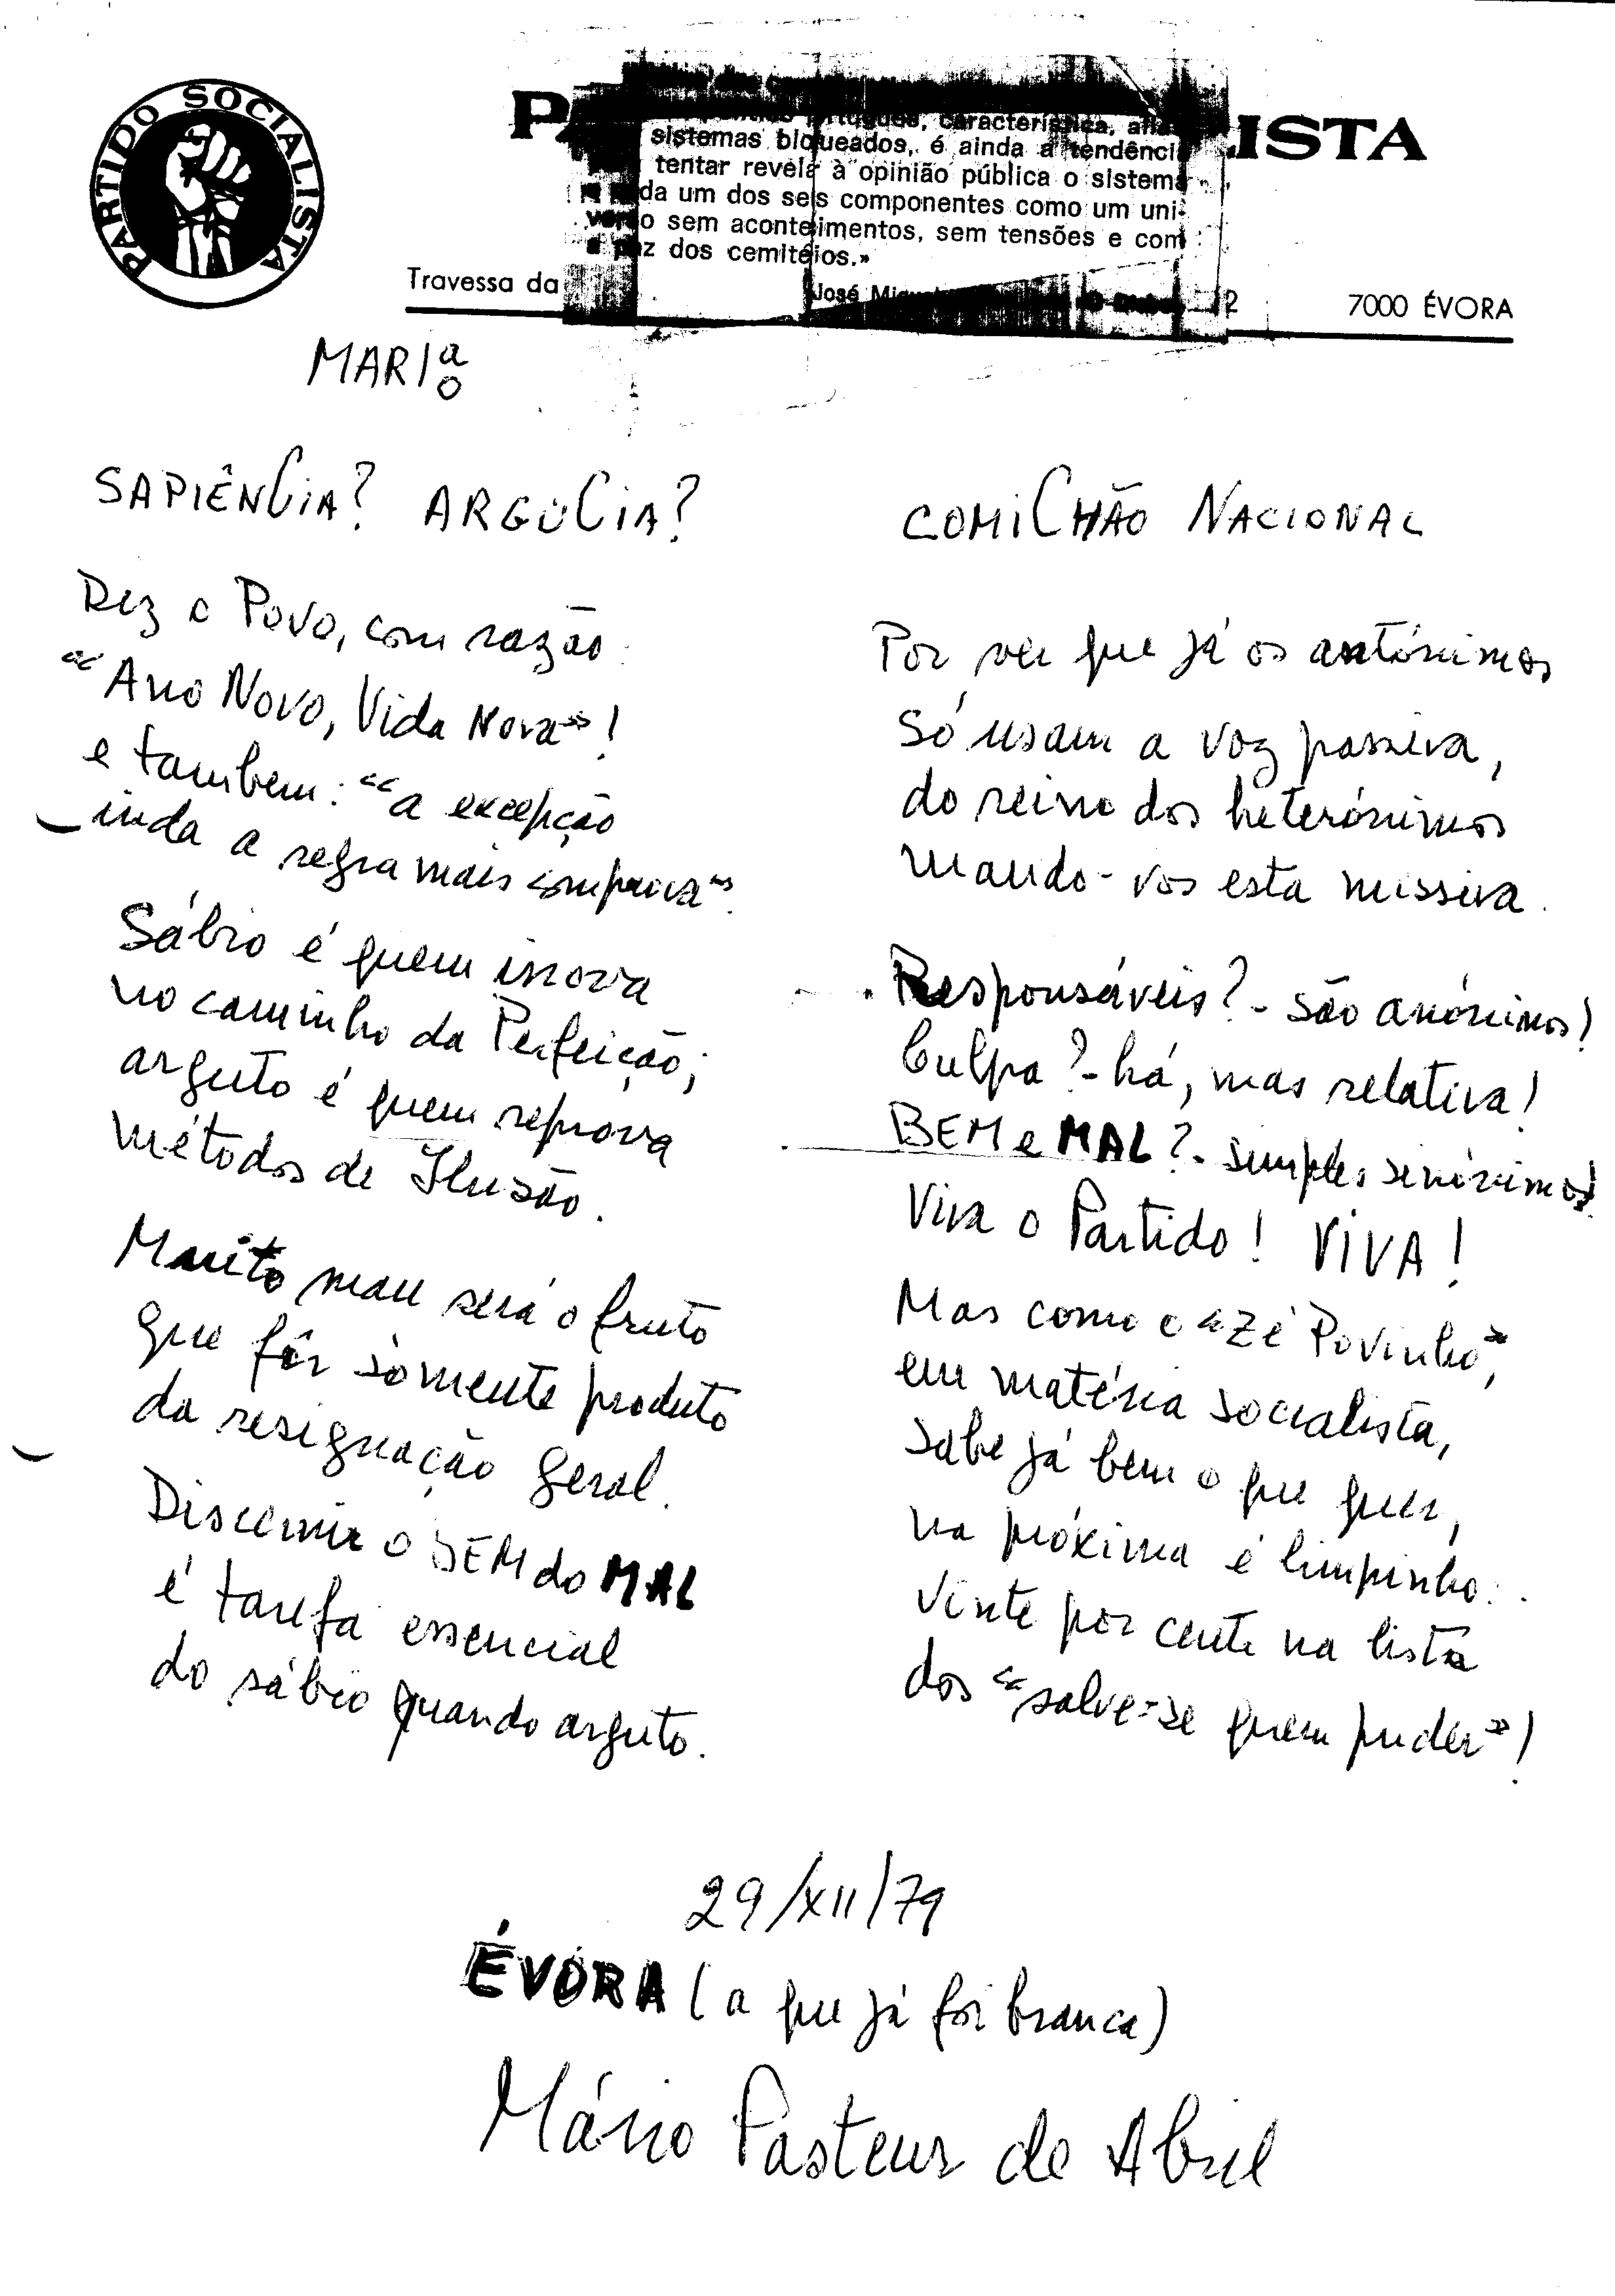 PARTIDO SOCIALISTA
P ISTA
português, característica,
sistemas bloqueados, é ainda a tendênci
tentar revela à opinião pública o sistema
da um dos seis componentes como um uni-
verso sem acontecimentos, sem tensões e com
a paz dos cemitéios.»
José
Travessa da
2
7000 ÉVORA
MARIª
o
SAPIÊNCIA? ARGÚCIA?
Diz o Povo, com razão:
"Ano Novo, Vida Nova"!
e tambem: "a excepção
inda a regra mais comprova".
Sábio é quem inova
no caminho da Perfeição;
arguto é quem reprova
métodos de Ilusão.
Muito mau será o fruto
que fôr sòmente produto
da resignação geral.
Discernir o BEM do MAL
é tarefa essencial
do sábio quando arguto.
COMICHÃO NACIONAL
Por ver que já os antónimos
Só usam a voz passiva,
do reino dos heterónimos
mando-vos esta missiva.
Responsáveis? - são anónimos!
Culpa? - há, mas relativa!
BEM e MAL? - simples sinónimos!
Viva o Partido! VIVA!
Mas como o "Zé Povinho",
em matéria socialista,
sabe já bem o que quer,
na próxima é limpinho:
Vinte por cento na lista
dos "salve-se quem puder"!
29/XII/79
ÉVORA (a que já foi branca)
Mário Pasteur de Abril